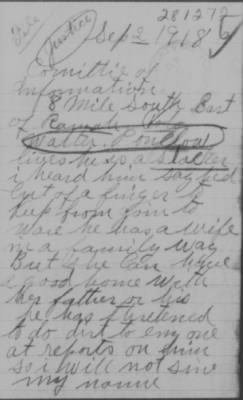 281272
File
Justice
Sep 2 1918
Comittie of
information
8 Mile South East
of
Walter
lives he is a slacker
i heard him say hed
cut of a finger to
keep from goin to
ware he has a wife
in a family way
But she can have
a good home with
her father or his
he has thretened
to do dirt to eny one
at reports on him
so i will not sine
my name